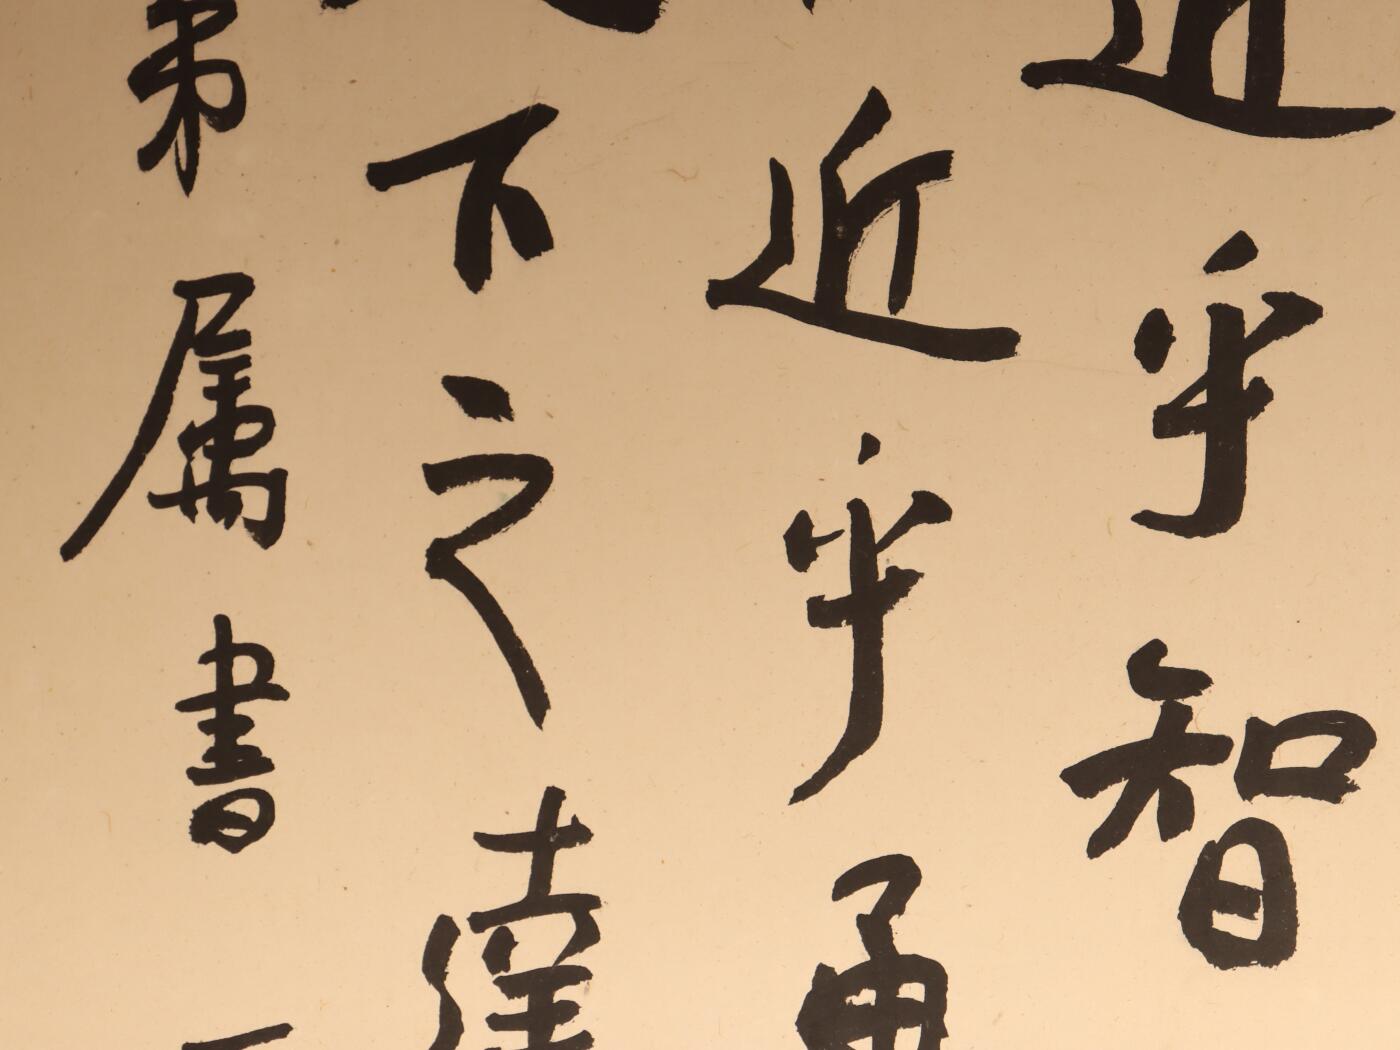 近乎智
近乎勇
下之達
弟属書